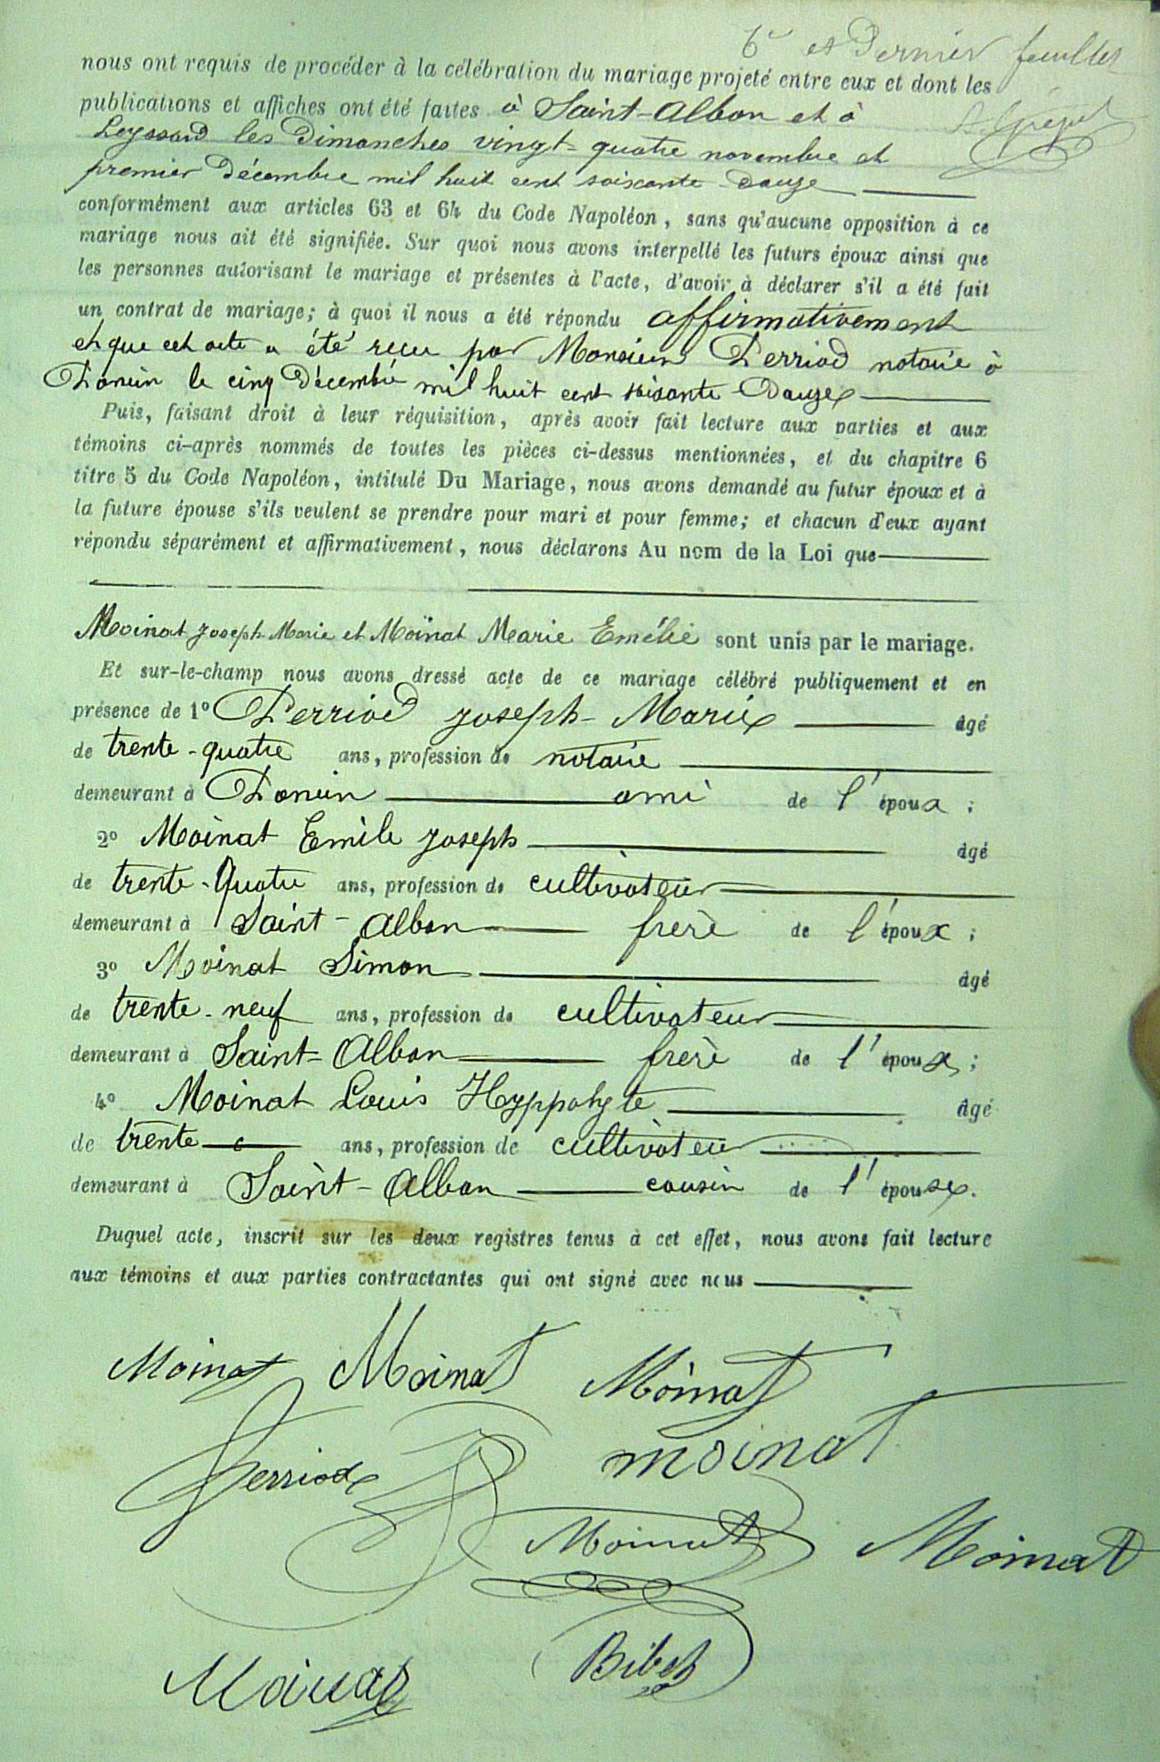 6e et Dernier feuillet
nous ont requis de procéder à la célébration du mariage projeté entre eux et dont les
publications et affiches ont été faites à Saint-Alban et à
Leyssard les Dimanches vingt-quatre novembre et
premier Décembre mil huit cent soixante-douze
conformément aux articles 63 et 64 du Code Napoléon, sans qu'aucune opposition à ce
mariage nous ait été signifiée. Sur quoi nous avons interpellé les futurs époux ainsi que
les personnes autorisant le mariage et présentes à l'acte, d'avoir à déclarer s'il a été fait
un contrat de mariage; à quoi il nous a été répondu affirmativement
et que cet acte a été reçu par Monsieur Perriod notaire à
Poncin le cinq Décembre mil huit cent soixante Douze
Puis, faisant droit à leur réquisition, après avoir fait lecture aux parties et aux
témoins ci-après nommés de toutes les pièces ci-dessus mentionnées, et du chapitre 6
titre 5 du Code Napoléon, intitulé Du Mariage, nous avons demandé au futur époux et à
la future épouse s'ils veulent se prendre pour mari et pour femme; et chacun d'eux ayant
répondu séparément et affirmativement, nous déclarons Au nom de la Loi que
Moinat Joseph Marie et Moinat Marie Emélie sont unis par le mariage.
Et sur-le-champ nous avons dressé acte de ce mariage célébré publiquement et en
présence de 1° Perriod Joseph-Marie âgé
de trente-quatre ans, profession de notaire
demeurant à Poncin ami de l'époux;
2° Moinat Emile Joseph âgé
de trente-Quatre ans, profession de cultivateur
demeurant à Saint-Alban frère de l'époux;
3° Moinat Simon âgé
de trente-neuf ans, profession de cultivateur
demeurant à Saint-Alban frère de l'époux;
4° Moinat Louis Hyppolyte âgé
de trente ans, profession de cultivateur
demeurant à Saint-Alban cousin de l'épouse.
Duquel acte, inscrit sur les deux registres tenus à cet effet, nous avons fait lecture
aux témoins et aux parties contractantes qui ont signé avec nous
Moinat Moinat Moinat
Perriod moinat
Moinat Moinat
Moinat Bibet